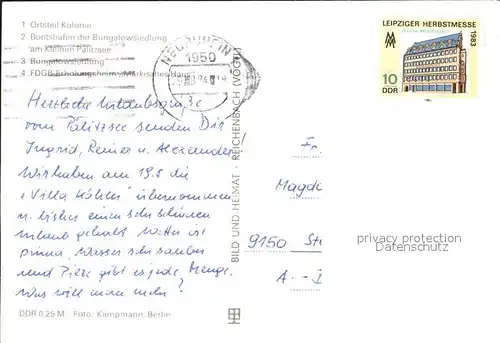 1 Ortsteil Kolonie
2 Bootshafen der Bungalowsiedlung
am Kleinen Pälitzsee
3 Bungalowsiedlung
4 FDGB-Erholungsheim "Märkisches Haus"
NEURUPPIN
1950
LEIPZIGER HERBSTMESSE
1983
10
DDR
Herzliche Urlaubsgrüße
vom Pälitzsee senden Dir
Ingrid, Reiner u. Alexander
Wir haben am 19.8 die
"Villa Köhler" übernommen
u. bisher einen sehr schönen
Urlaub gehabt. Wetter ist
prima, Wasser sehr sauber
und Pilze gibt es jede Menge.
Was will man mehr?
BILD UND HEIMAT · REICHENBACH (VOGTL)
Fr.
Magda
9150 St
A.-
privacy protection
Datenschutz
DDR 0,25 M Foto: Kampmann, Berlin